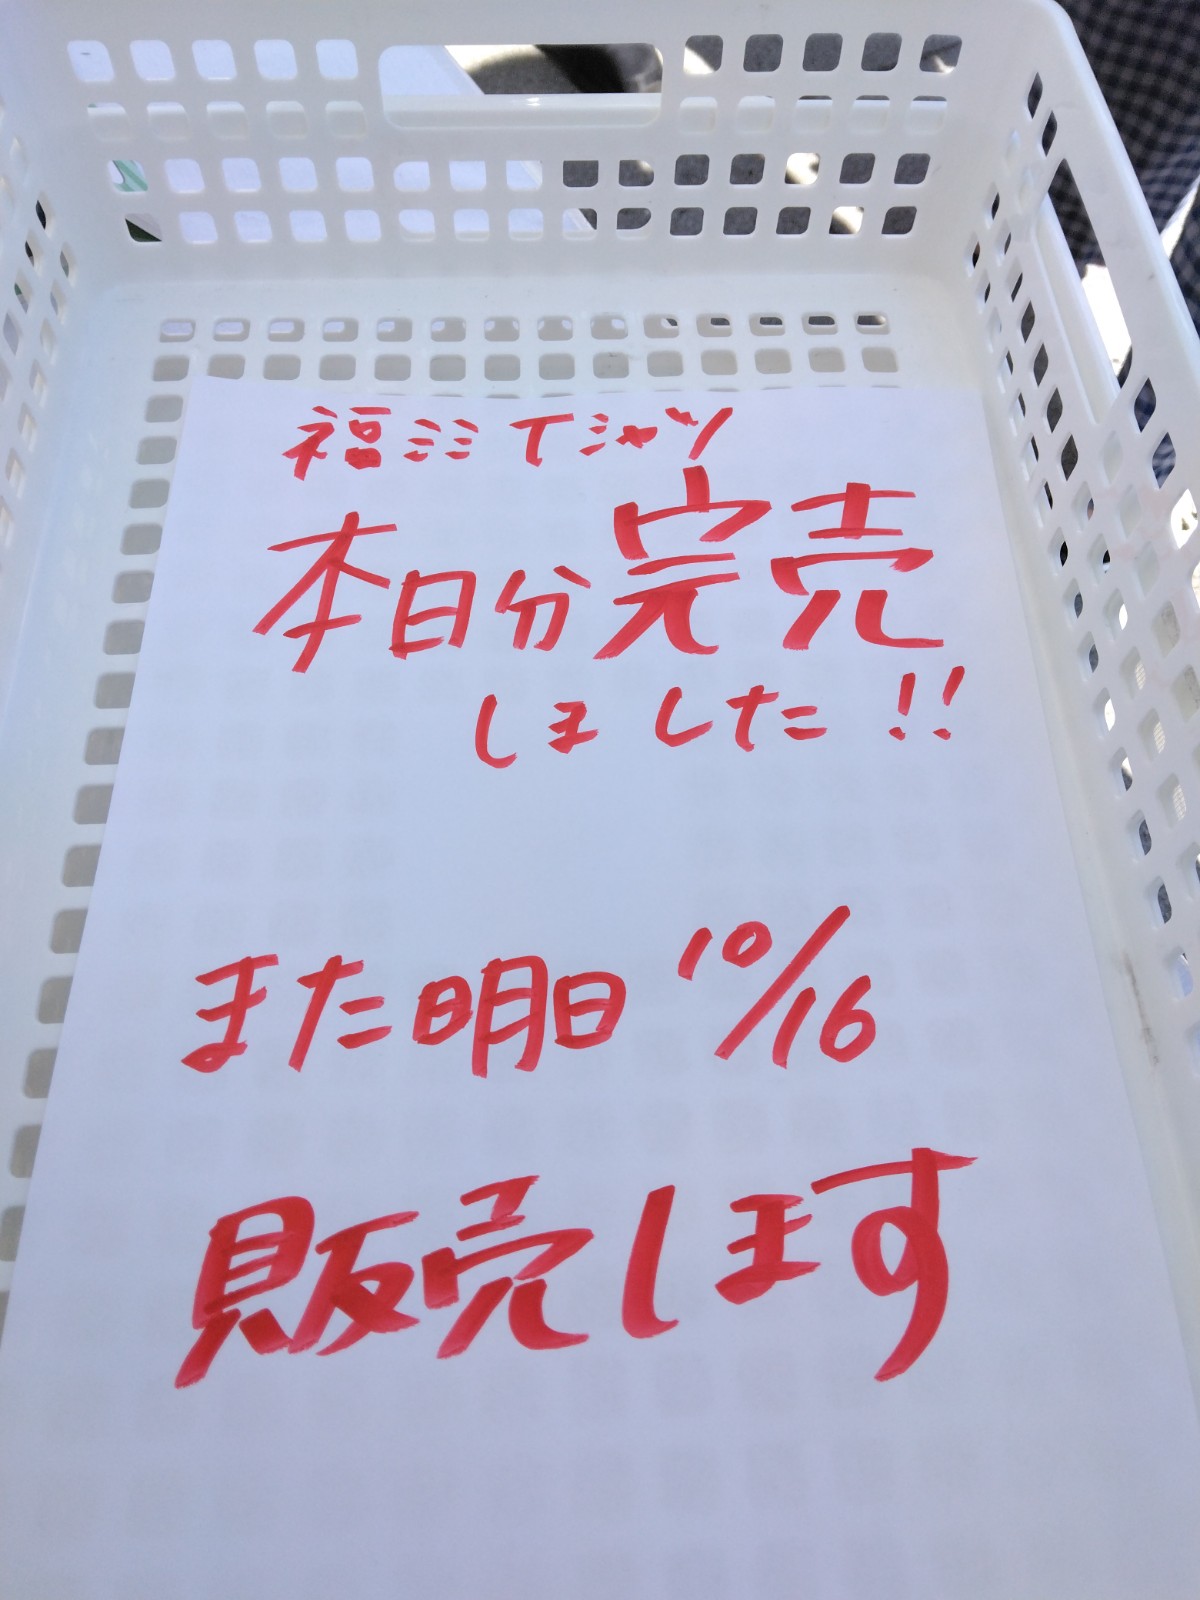 福ミミTシャツ
本日分完売
しました!!
また明日 10/16
販売します